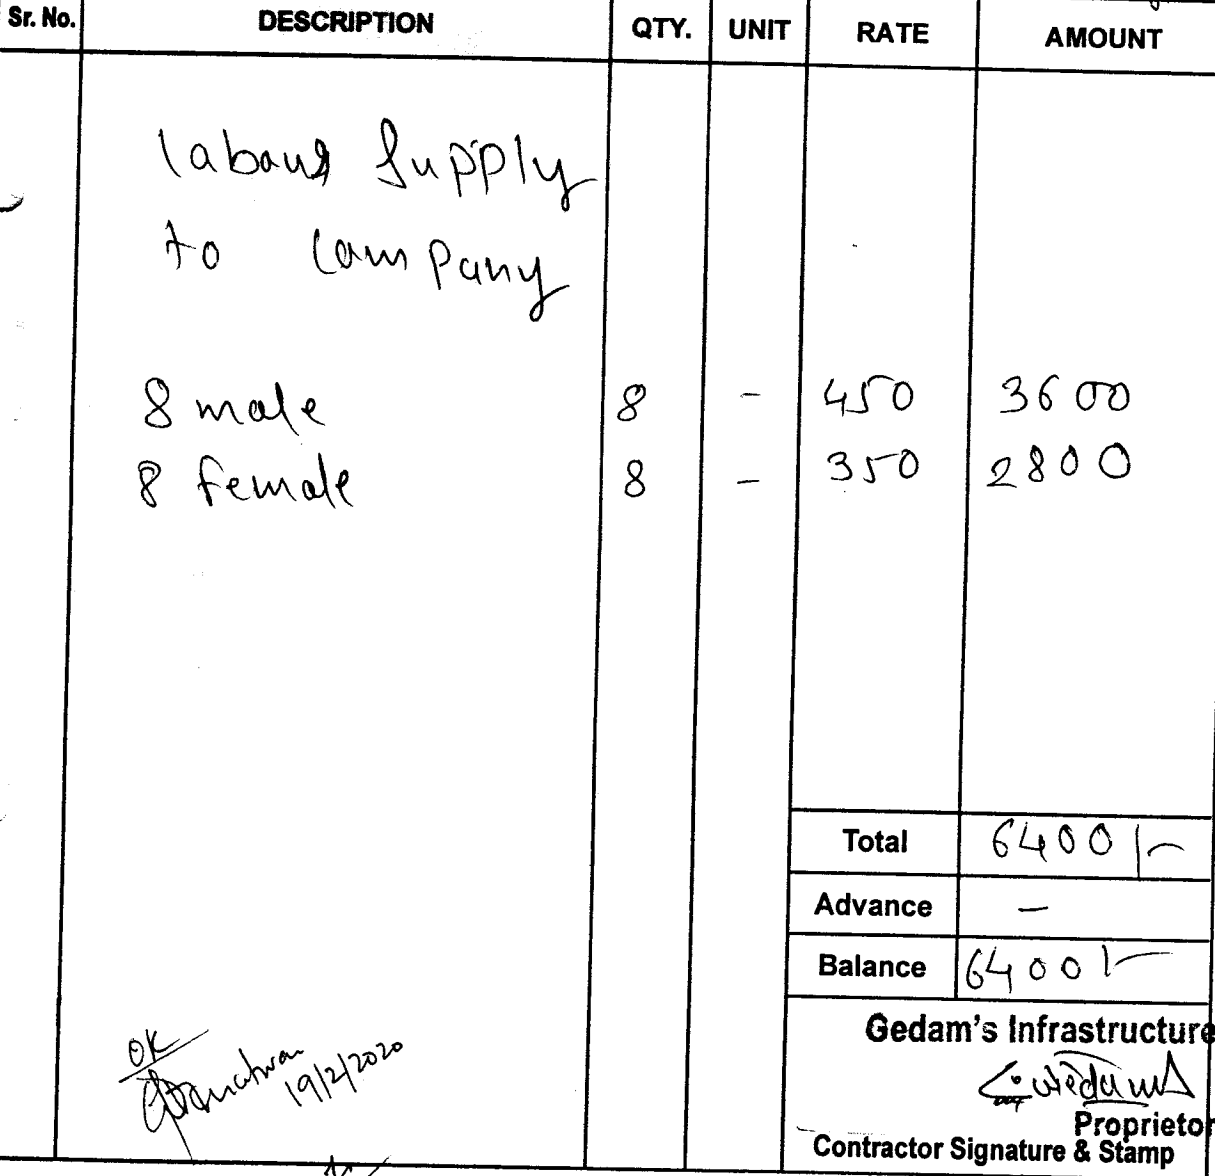 Sr. No. DESCRIPTION QTY. UNIT RATE AMOUNT
labour Supply
to Company
8 male 8 - 450 3600
8 female 8 - 350 2800
Total 6400/-
Advance -
Balance 6400/-
Gedam's Infrastructure
OK
19/2/2020
Proprietor
Contractor Signature & Stamp